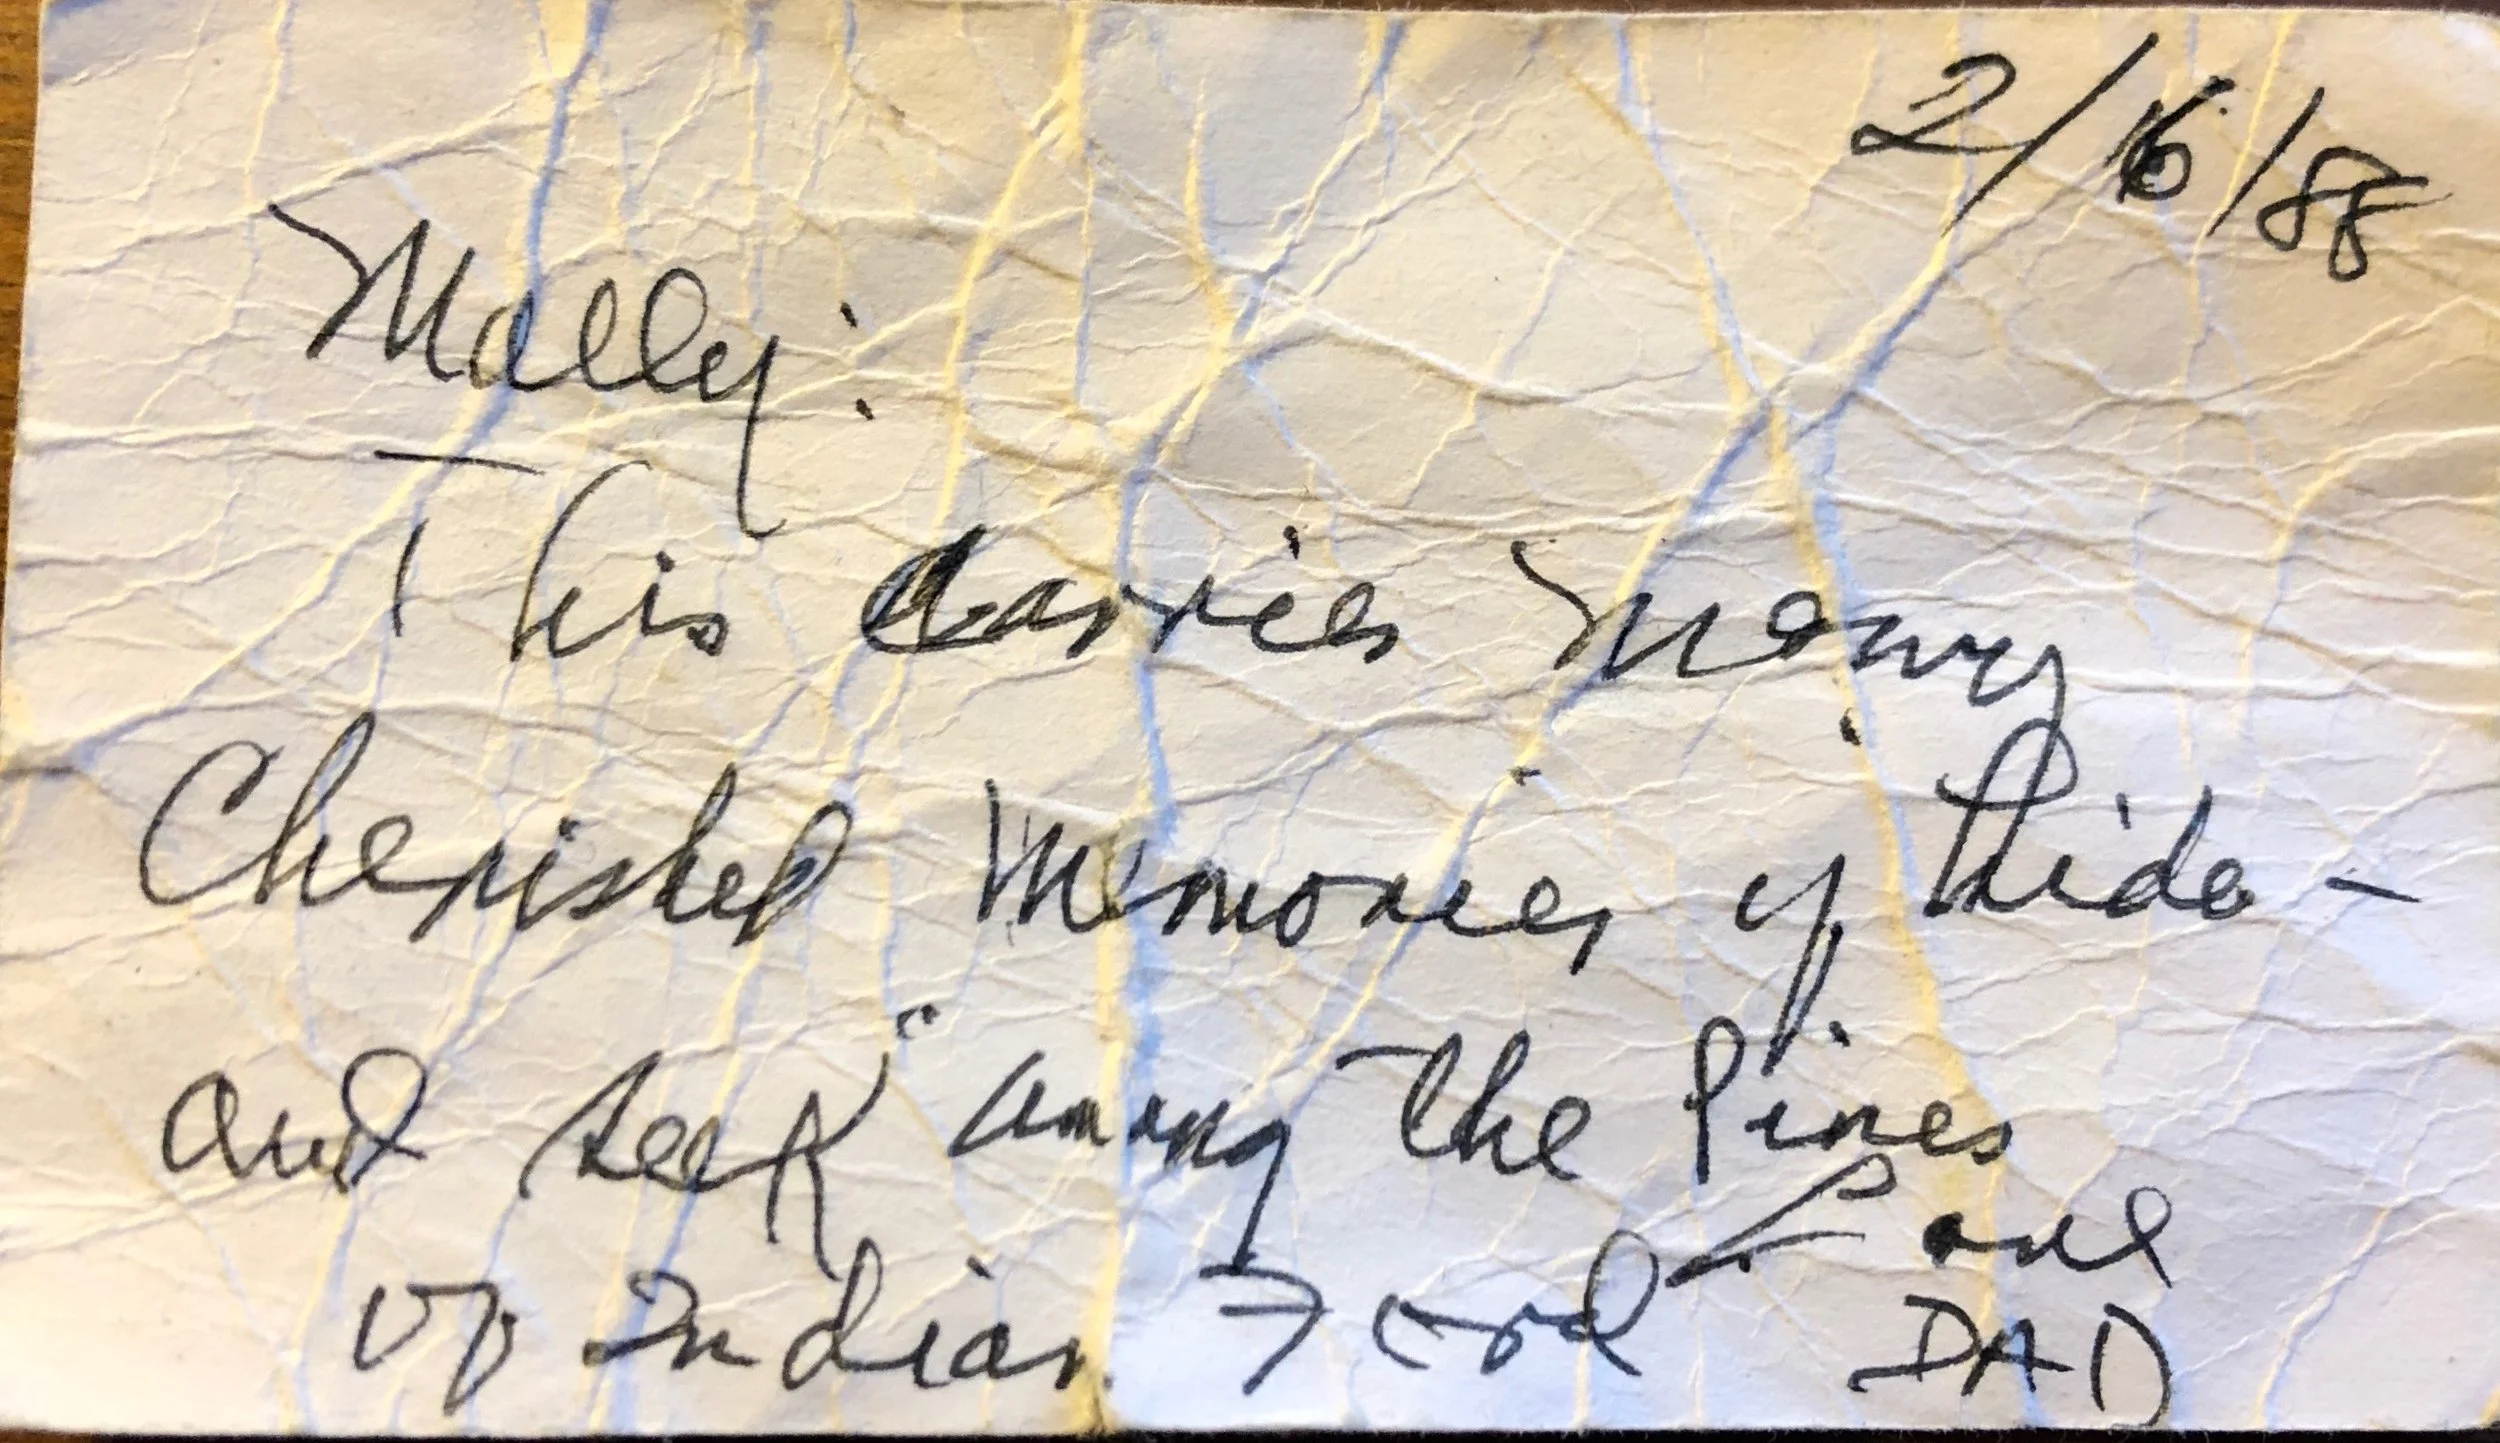 2/6/88
Mally:
This carries many
Cherished Memories of "hide-
and seek" among the Pines
of Indian Ford
Love
DAD